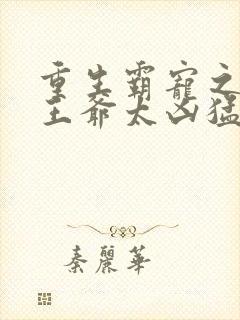 重生霸寵之
王爺太凶猛
秦麗華